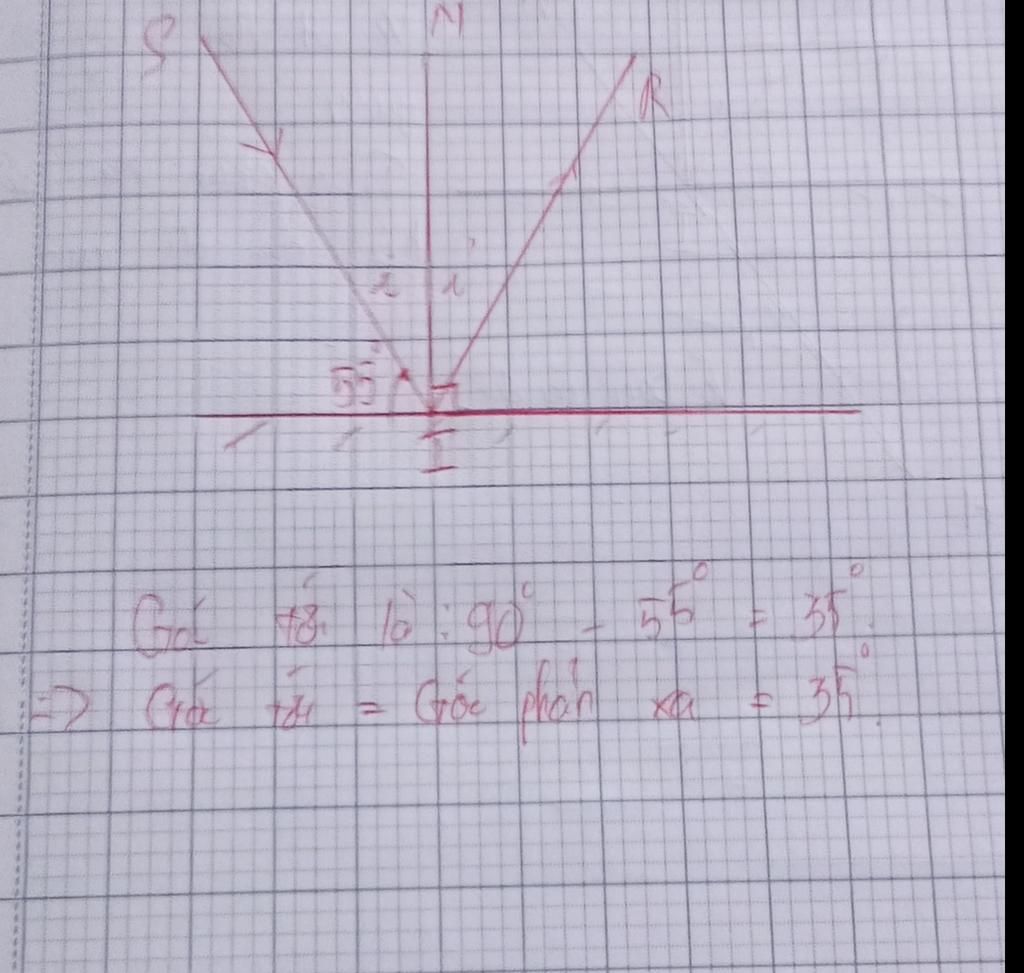 S N R
i i'
55°
I
Góc tới là : 90° - 55° = 35°.
=> Góc tới = Góc phản xạ = 35°.